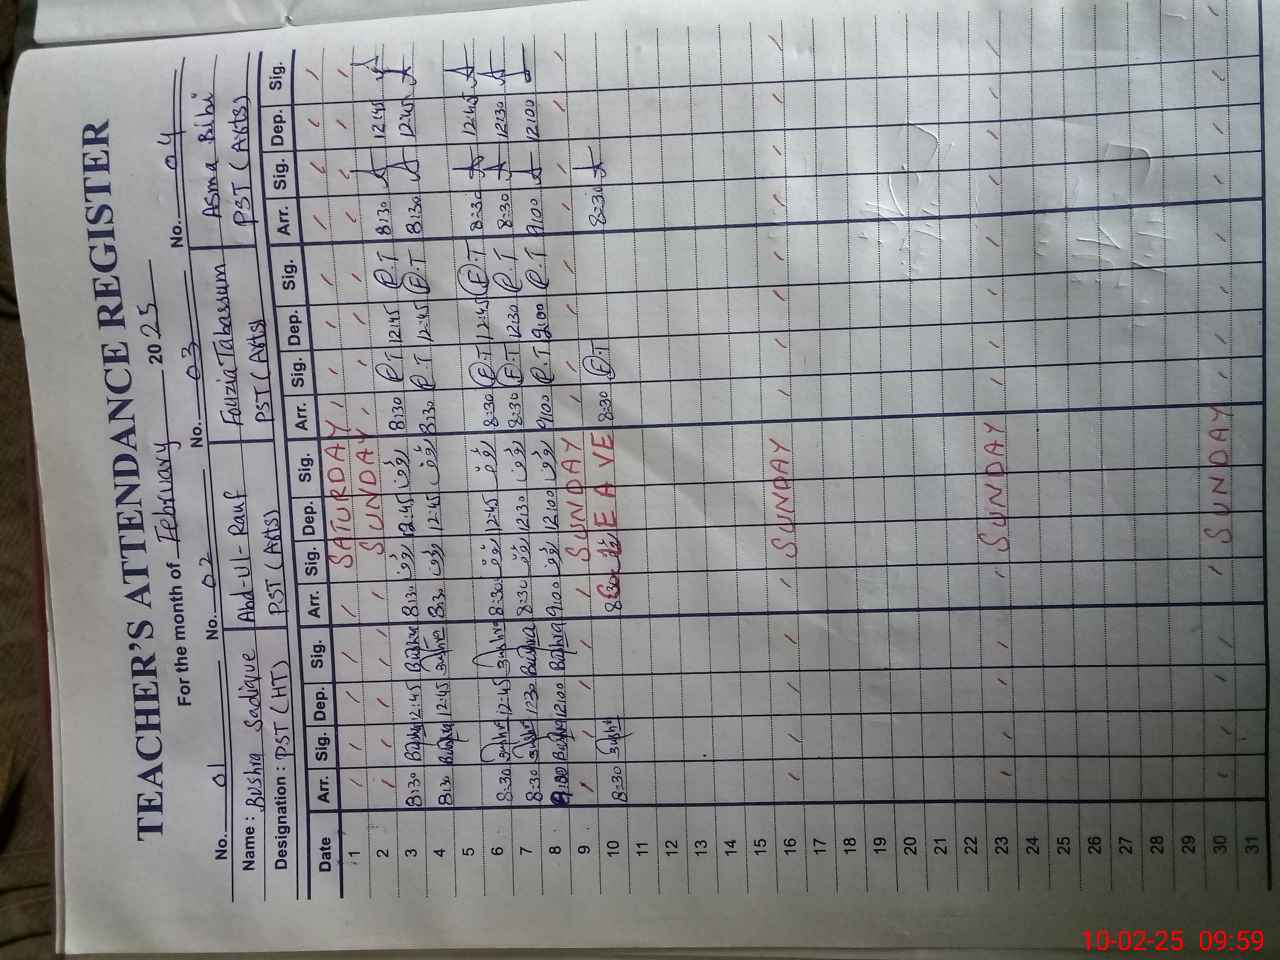 TEACHER'S ATTENDANCE REGISTER
For the month of February 2025
No. 01 No. 02 No. 03 No. 04
Name: Bushra Sadique Abd-Ul-Rauf Fouzia Tabassum Asma Bibi
Designation: PST (HT) PST (Arts) PST (Arts) PST (Arts)
Date Arr. Sig. Dep. Sig. Arr. Sig. Dep. Sig. Arr. Sig. Dep. Sig. Arr. Sig. Dep. Sig.
1 SATURDAY
2 SUNDAY
3 8:30 Bushra 12:45 Bushra 8:30 12:45 8:30 F.T 12:45 F.T 8:30 A 12:45 A
4 8:30 Bushra 12:45 Bushra 8:30 12:45 8:30 F.T 12:45 F.T 8:30 A 12:45 A
5
6 8:30 Bushra 12:45 Bushra 8:30 12:45 8:30 F.T 12:45 F.T 8:30 A 12:45 A
7 8:30 Bushra 12:30 Bushra 8:30 12:30 8:30 F.T 12:30 F.T 8:30 A 12:30 A
8 9:00 Bushra 12:00 Bushra 9:00 12:00 9:00 F.T 12:00 F.T 9:00 A 12:00 A
9 SUNDAY
10 8:30 Bushra 8:30 LEAVE 8:30 F.T 8:30 A
11
12
13
14
15
16 SUNDAY
17
18
19
20
21
22
23 SUNDAY
24
25
26
27
28
29
30 SUNDAY
31
10-02-25 09:59